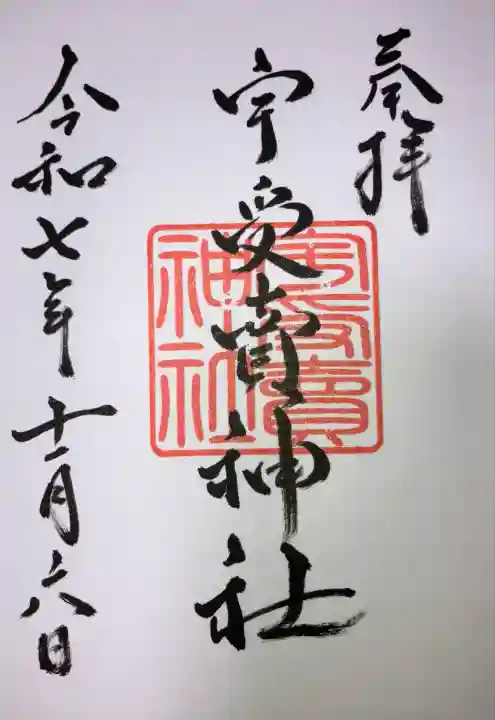 奉拝
宇受賣神社
宇受賣神社
令和七年十一月六日